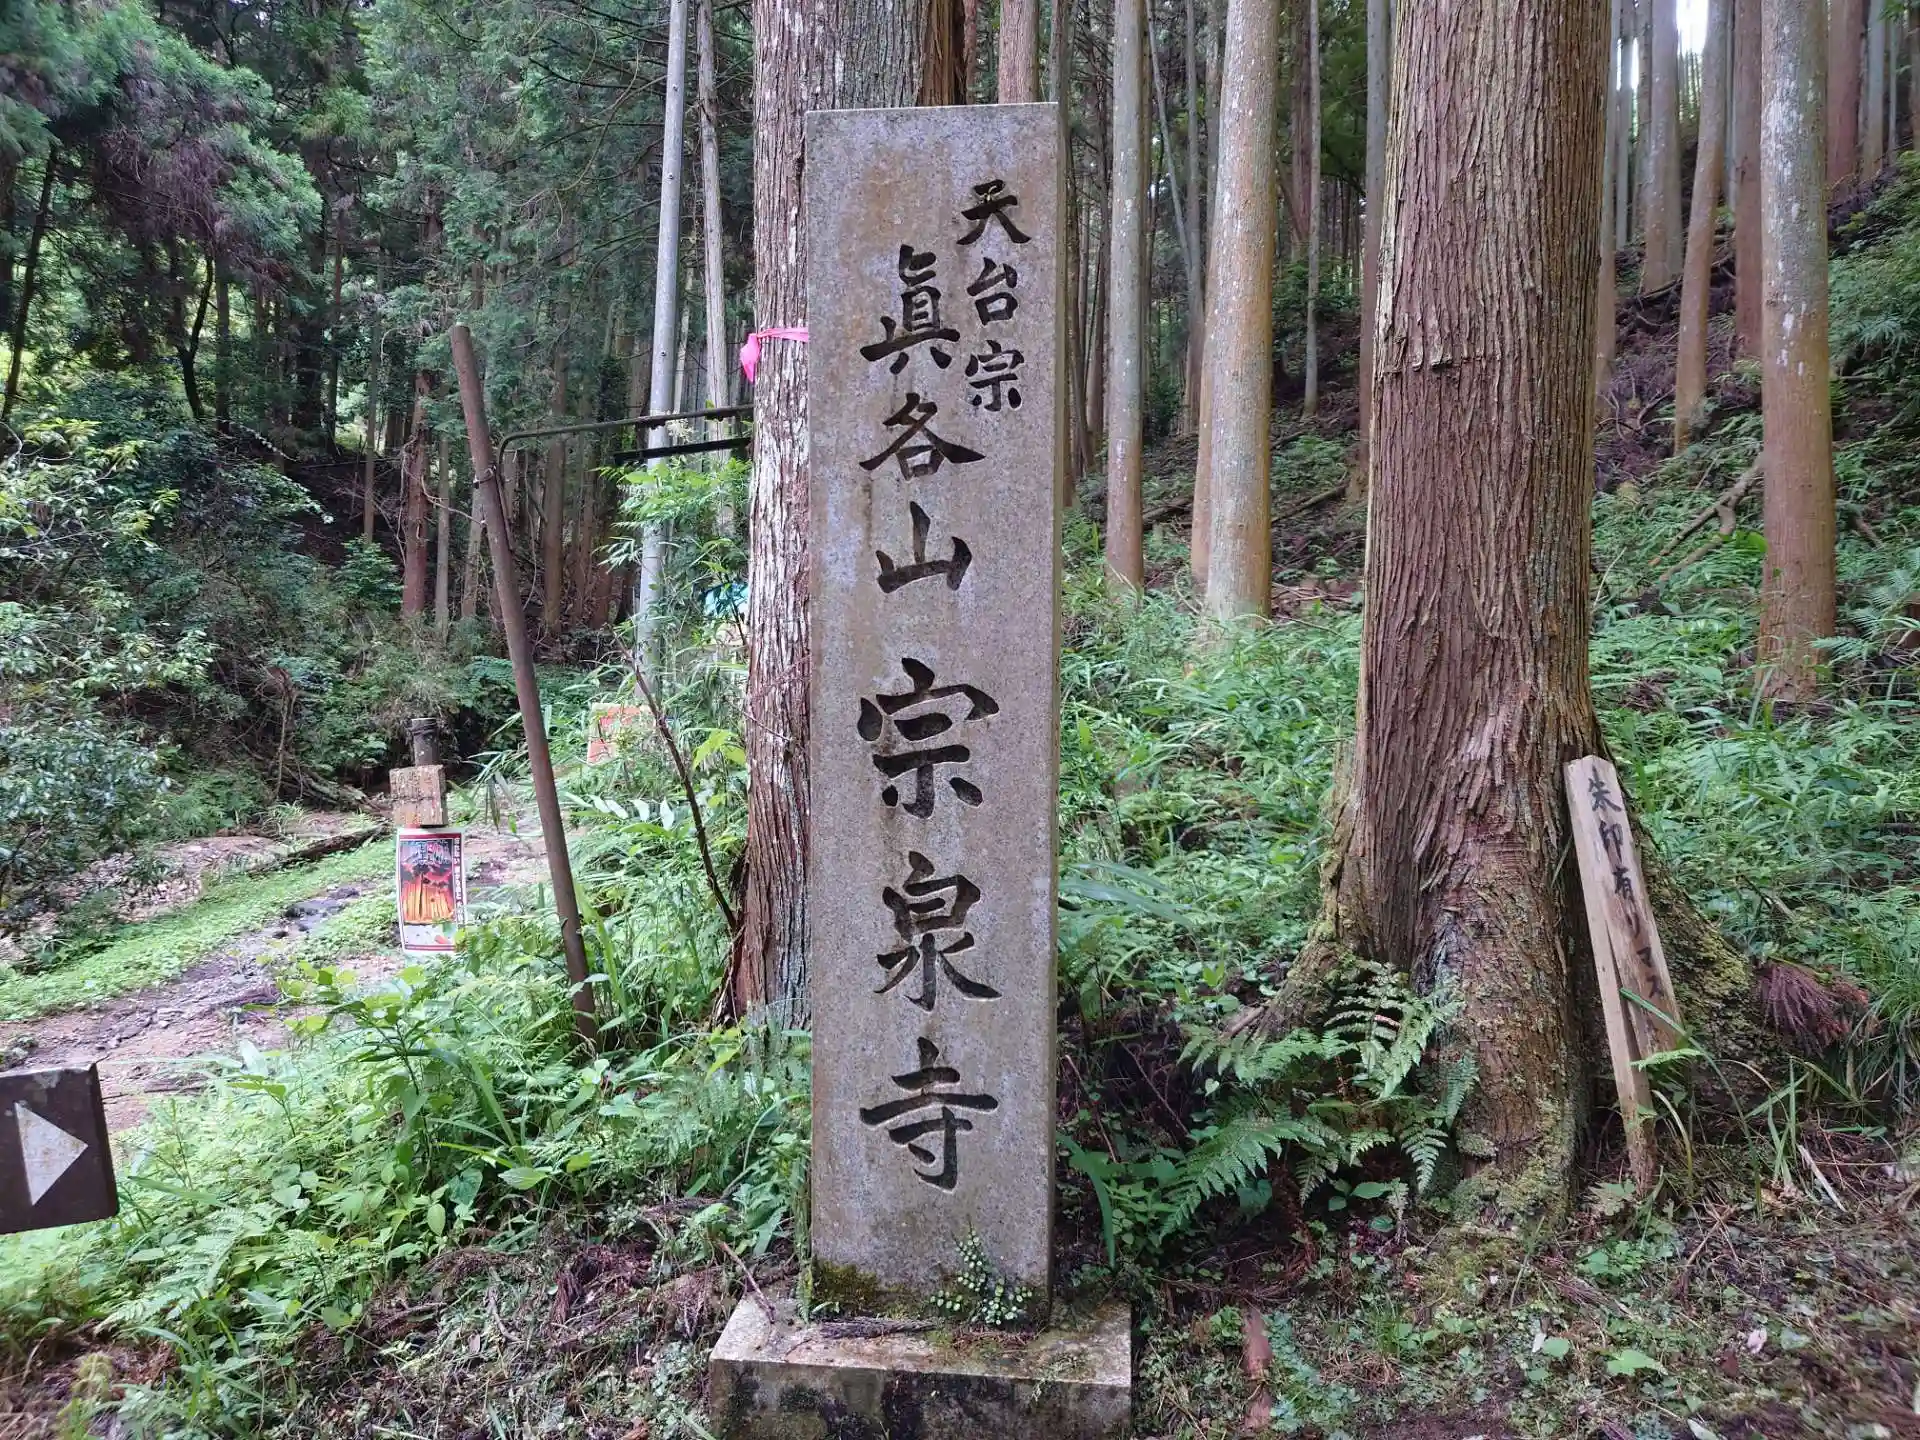 天台宗
眞各山宗泉寺
朱印有リマス